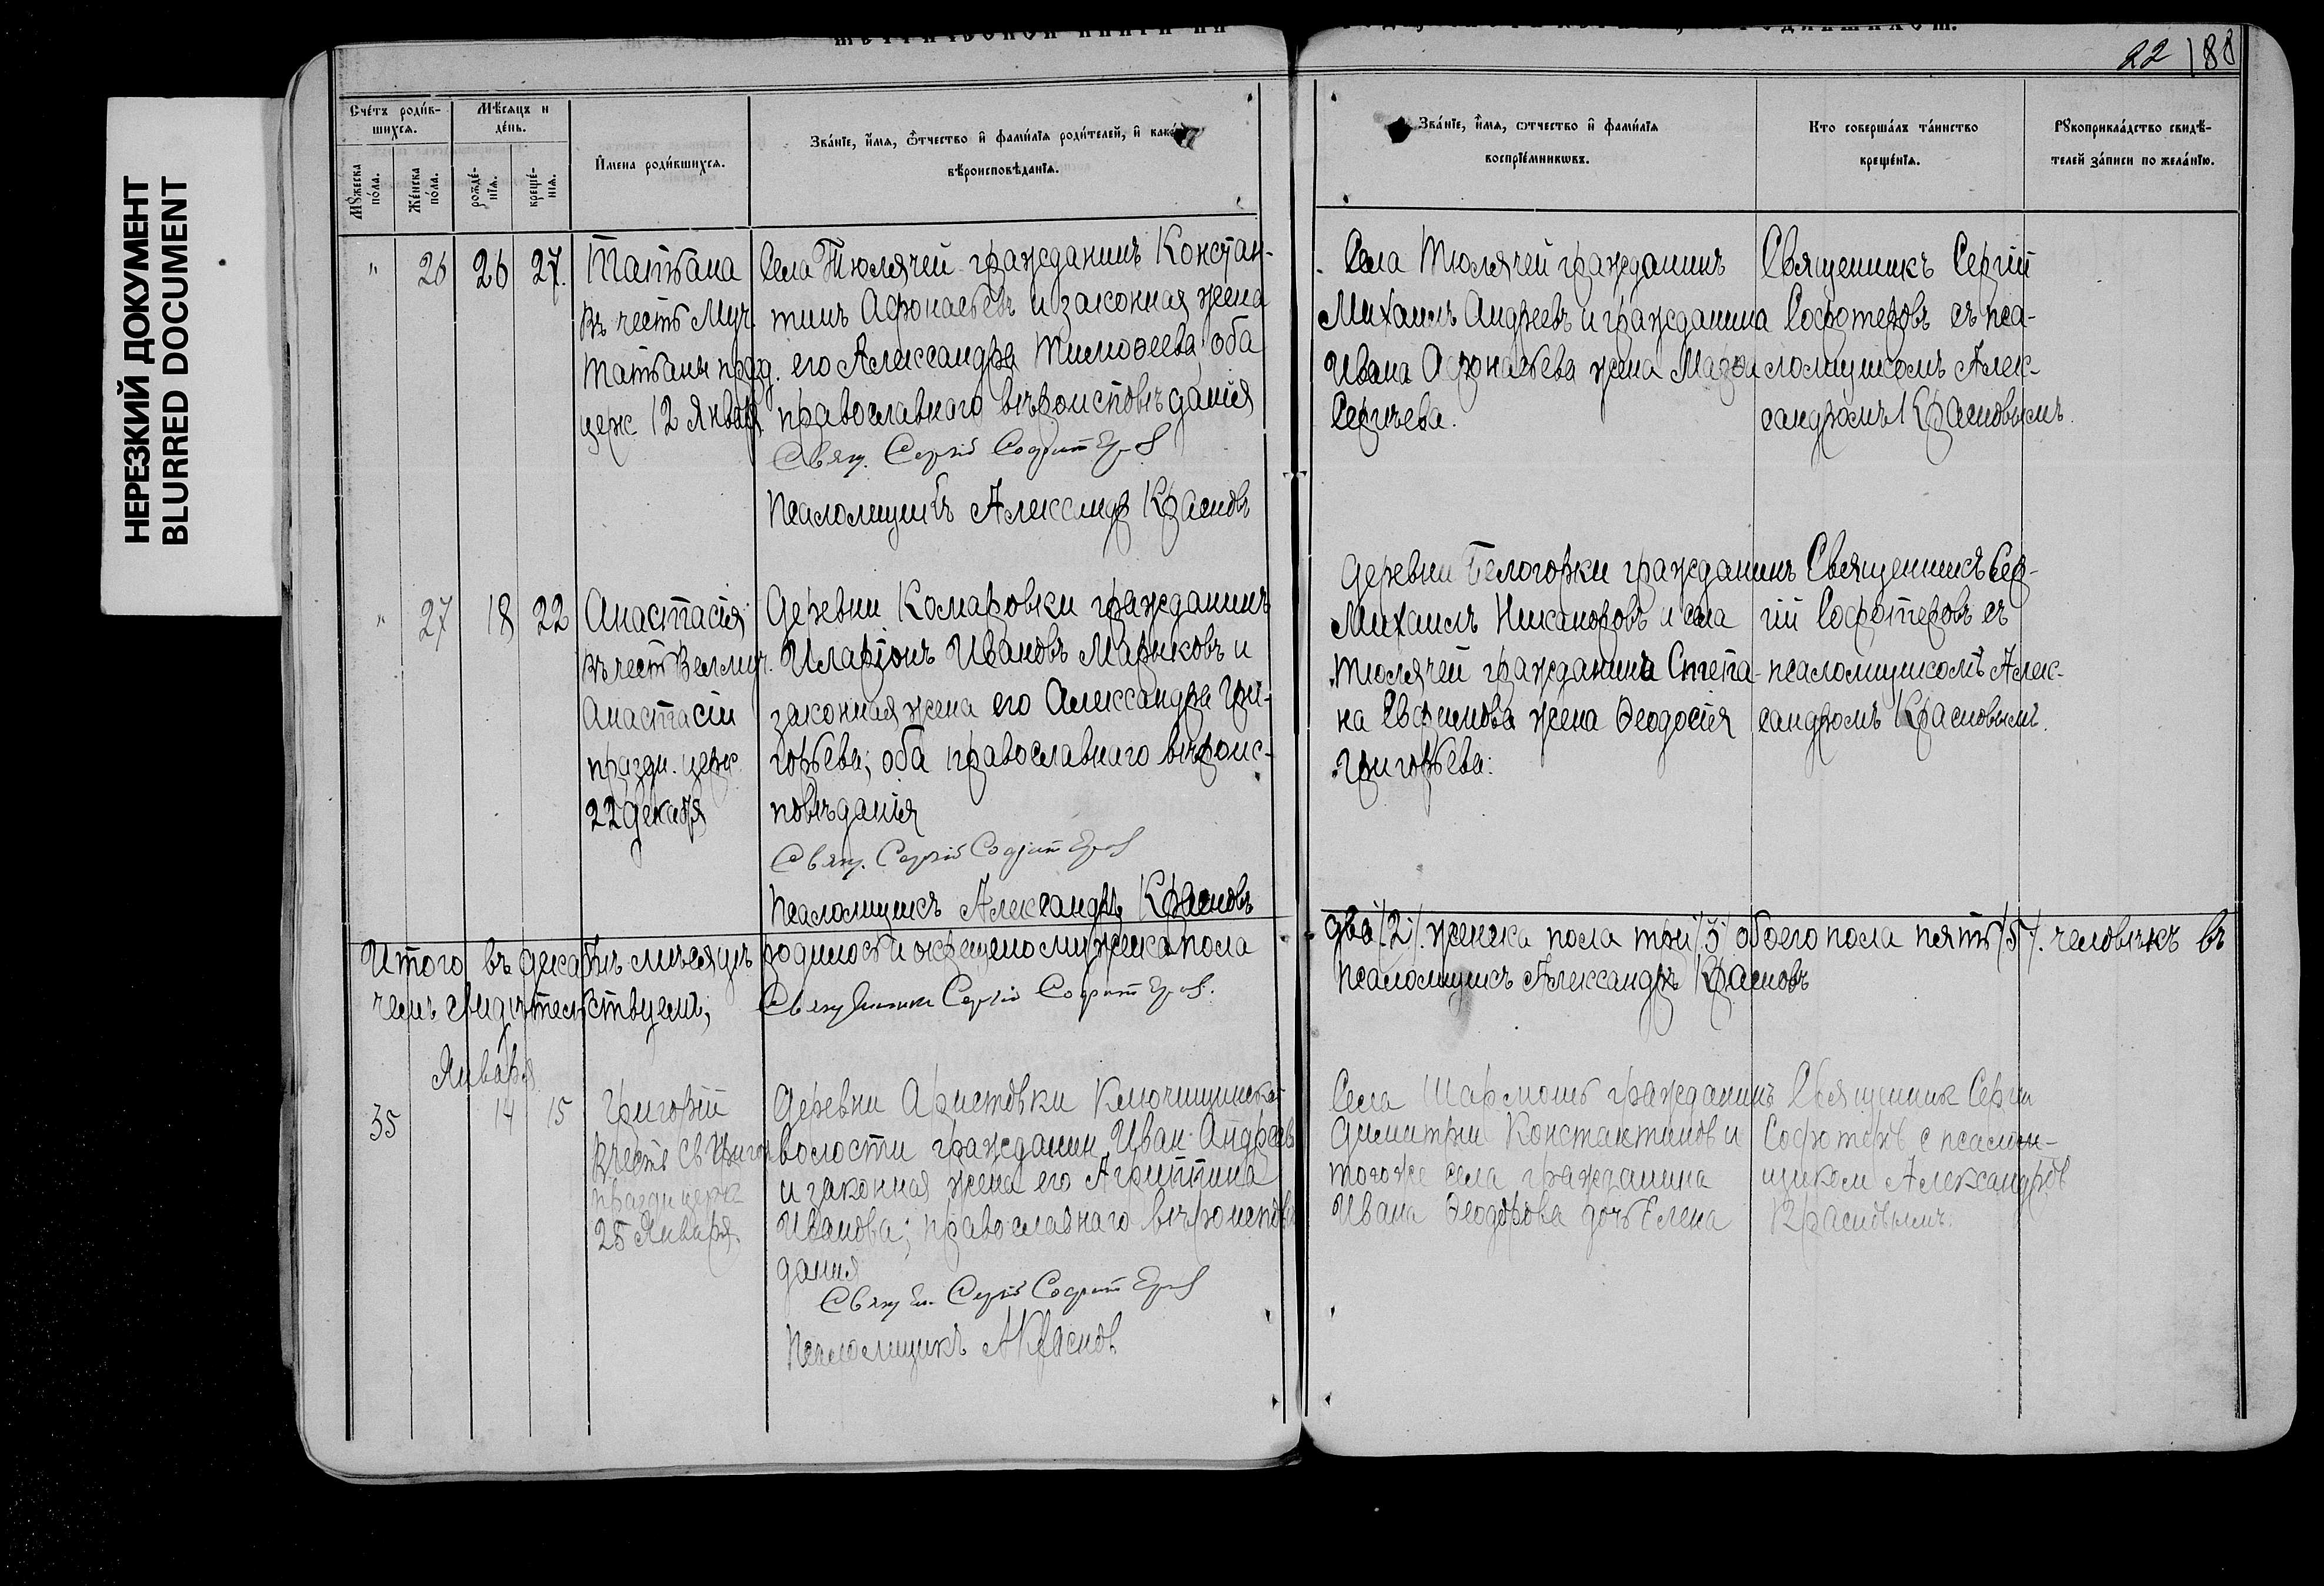 НЕРЕЗКИЙ ДОКУМЕНТ
BLURRED DOCUMENT
22 188
Сче́тъ роди́вшихся.
Мѣ́сяцъ и де́нь.
Мꙋ́жеска по́ла.
Же́нска по́ла.
рожде́нїѧ.
креще́нїѧ.
И҆мена роди́вшихся.
Зва́нїе, и҆́мѧ, ѻ҆́тчество и҆ фами́лїѧ роди́телей, и҆ како́
вѣроисповѣ́данїѧ.
Зва́нїе, и҆́мѧ, ѻтчество и҆ фами́лїѧ
воспрїе́мникѡвъ.
Кто соверша́лъ та́инство
креще́нїѧ.
Рꙋкоприкла́дство свидѣ́-
телей за́писи по жела́нїю.
" 26 26 27.
Татьяна
въ честь Муч.
Татьяны празд.
церк. 12 Января
Села Тюлячей гражданинъ Констан-
тинъ Афонасьевъ и законная жена
его Александра Тимоѳеева оба
православнаго вѣроисповѣданія
Свящ. Сергій Софотеровъ
Псаломщикъ Александръ Красновъ
Села Тюлячей гражданинъ
Михаилъ Андреевъ и гражданина
Ивана Афонасьева жена
Сергѣева.
Священникъ Сергій
Софотеровъ съ пса-
ломщикомъ Алек-
сандромъ Красновымъ.
" 27 18 22
Анастасія
въ честь Велмуч.
Анастасіи
праздн. церк.
22 Декабря
Деревни Комаровки гражданинъ
Иларіонъ Ивановъ Марыковъ и
законная жена его Александра Гри-
горьева; оба православнаго вѣроис-
повѣданія
Свящ. Сергій Софотеровъ
Псаломщикъ Александръ Красновъ
Деревни Белогорки гражданинъ
Михаилъ Никаноровъ и села
Тюлячей гражданина Степа-
на Евфимова жена Ѳеодосія
Григорьева.
Священникъ Сер-
гій Софотеровъ съ
псаломщикомъ Алек-
сандромъ Красновымъ.
Итого въ декабрѣ мѣсяцѣ родилось и окрещено мужеска пола два /2/. женска пола три /3/ обоего пола пять /5/. человѣкъ въ
чемъ свидѣтельствуемъ; Священникъ Сергій Софотеровъ. Псаломщикъ Александръ Красновъ
Января
35 14 15
Григорій
въ честь Св. Григор
праздн церк
25 Января.
Деревни Аристовки Ключищинской
волости гражданин Иван Андреев
и законная жена его Агриппина
Иванова; православнаго вѣроисповѣ
дания
Сергій Софотеровъ
Псаломщикъ А Краснов
Села Шармашъ гражданинъ
Димитрии Константинов и
тогоже села гражданина
Ивана Ѳеодорова дочь Елена
Священник Сергии
Софотеръ с псалом-
щиком Александров
Красновымъ.